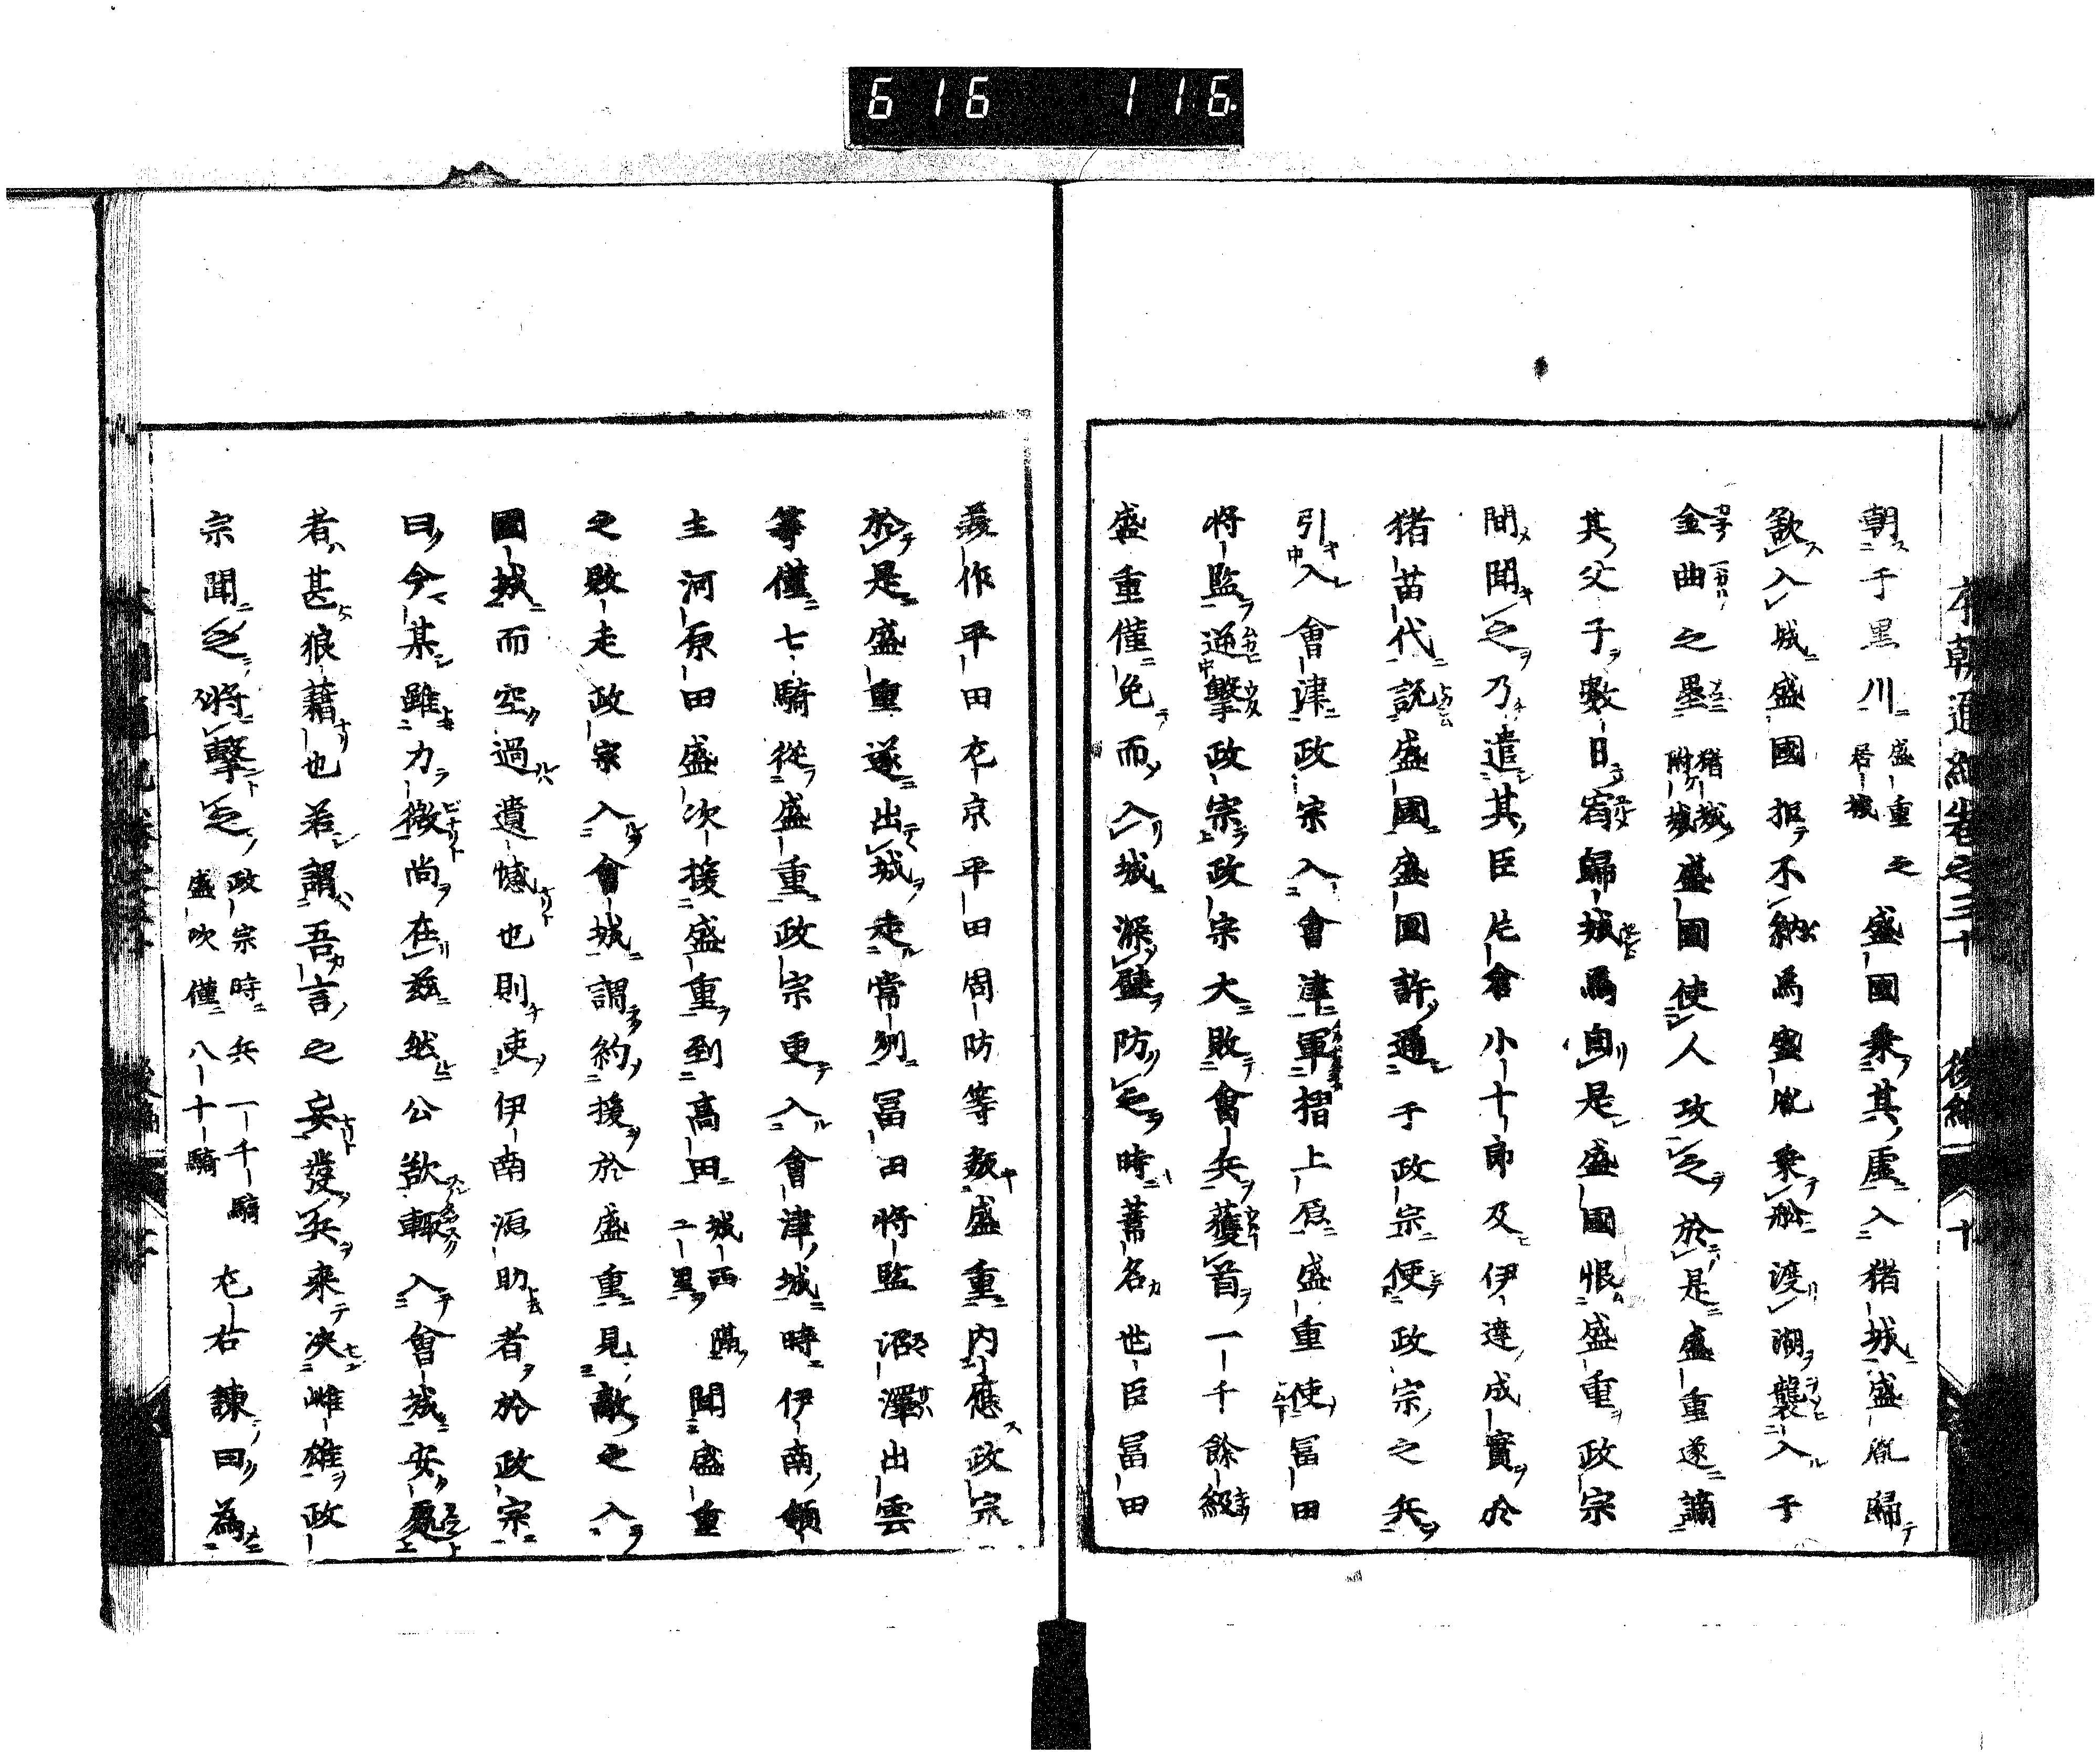 616 116
本朝通紀卷之三十 後編一 十
朝于黒川盛重居城之盛國乗其虚入猪城盛胤歸
欲入城盛國拒不納爲盛胤乗舩渡湖襲入于
金曲之墨猪城附城盛國使人攻之於是盛重遂謫
其父子數日宥歸城爲自是盛國恨盛重政宗
間聞之乃遣其臣片倉小十郎及伊達成實於
猪苗代説盛國盛國許通于政宗便政宗之兵
引入會津政宗入會津軍摺上原盛重使冨田
將監逆擊政宗政宗大敗會兵獲首一千餘級
盛重僅免而入城深壁防之時蓄名世臣冨田
美作平田左京平田周防等叛盛重内應政宗
於是盛重遂出城走常州冨田將監沼澤出雲
等僅七騎從盛重政宗更入會津城時伊南領
主河原田盛次援盛重到高田城西隔二里聞盛重
之敗走政宗入會城謂約援於盛重見敵之入
國城而空過遺憾也則使伊南源助者於政宗
曰今某雖力微尚在茲然公欲輙入會城安處
者甚狼藉也若謂吾言之妄發兵来决雌雄政
宗聞之將擊之政宗時兵一千騎盛次僅八十騎左右諫曰為